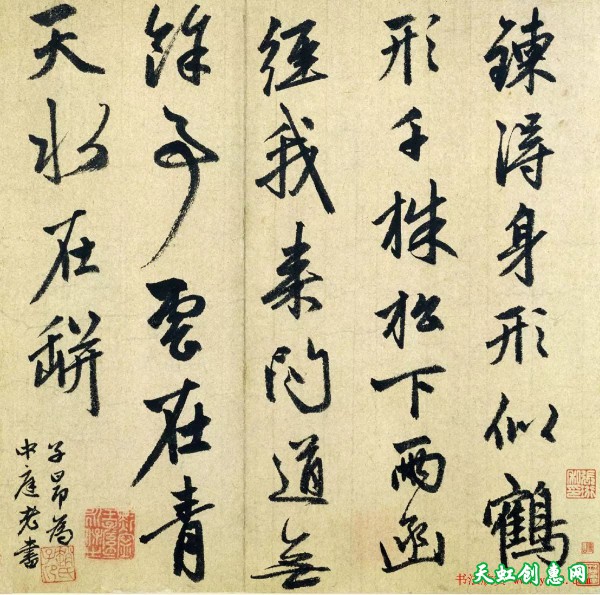 鍊得身形似鶴
形千株松下兩函
經我來問道無
餘事雲在青
天水在缾
子昂為
中庭老書
天虹创惠网